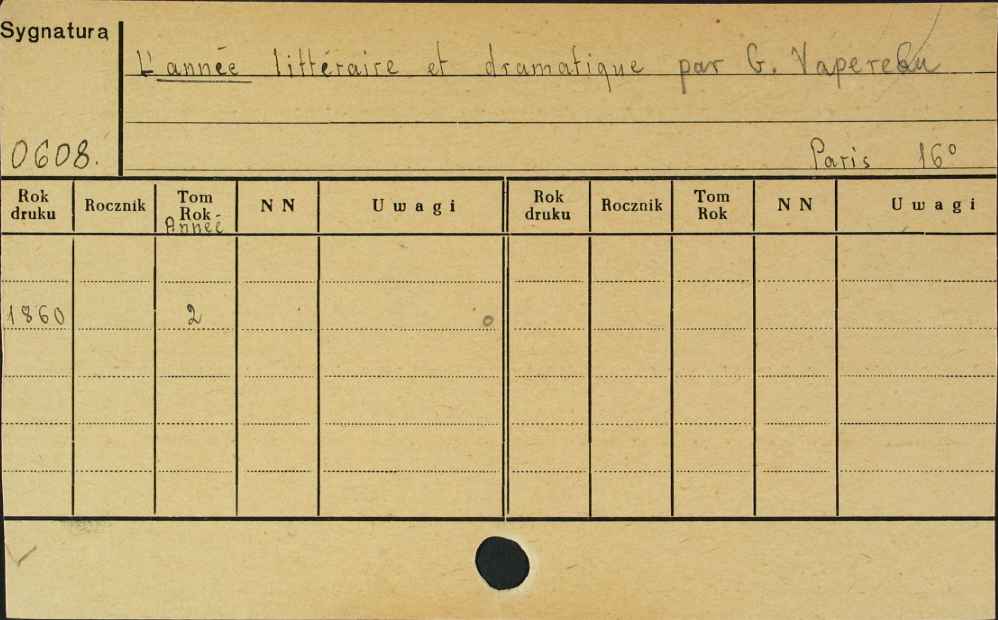 Sygnatura
L'année littéraire et dramatique par G. Vapereau
0608.
Paris 16°
Rok druku Rocznik Tom Rok Année NN Uwagi Rok druku Rocznik Tom Rok NN Uwagi
1860 2